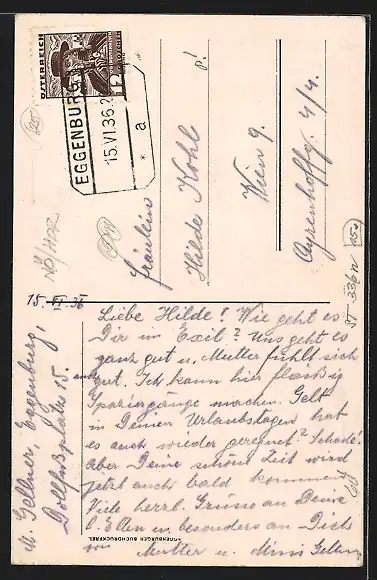 ÖSTERREICH
12
EGGENBURG
15.VI.36.
* a
Fräulein
Hilde Kohl
p!
Wien 9.
Ayrenhoffg. 4/4.
NÖ/HOR
ST 336 N
15.VI.36
M. Gellner, Eggenburg,
Dollfußplatz 15.
Liebe Hilde! Wie geht es
Dir im Exil? Uns geht es
ganz gut u. Mutter fühlt sich
auch gut. Ich kann hier fleißig
Spaziergänge machen. Gelt
in Deinen Urlaubstagen hat
es auch wieder geregnet? Schade!
Aber Deine schöne Zeit wird
jetzt auch bald kommen.
Viele herzl. Grüsse an Deine
l. Eltern u. besonders an Dich
von
Mutter u. Minis Gellner
EGGENBURGER BUCHDRUCKEREI